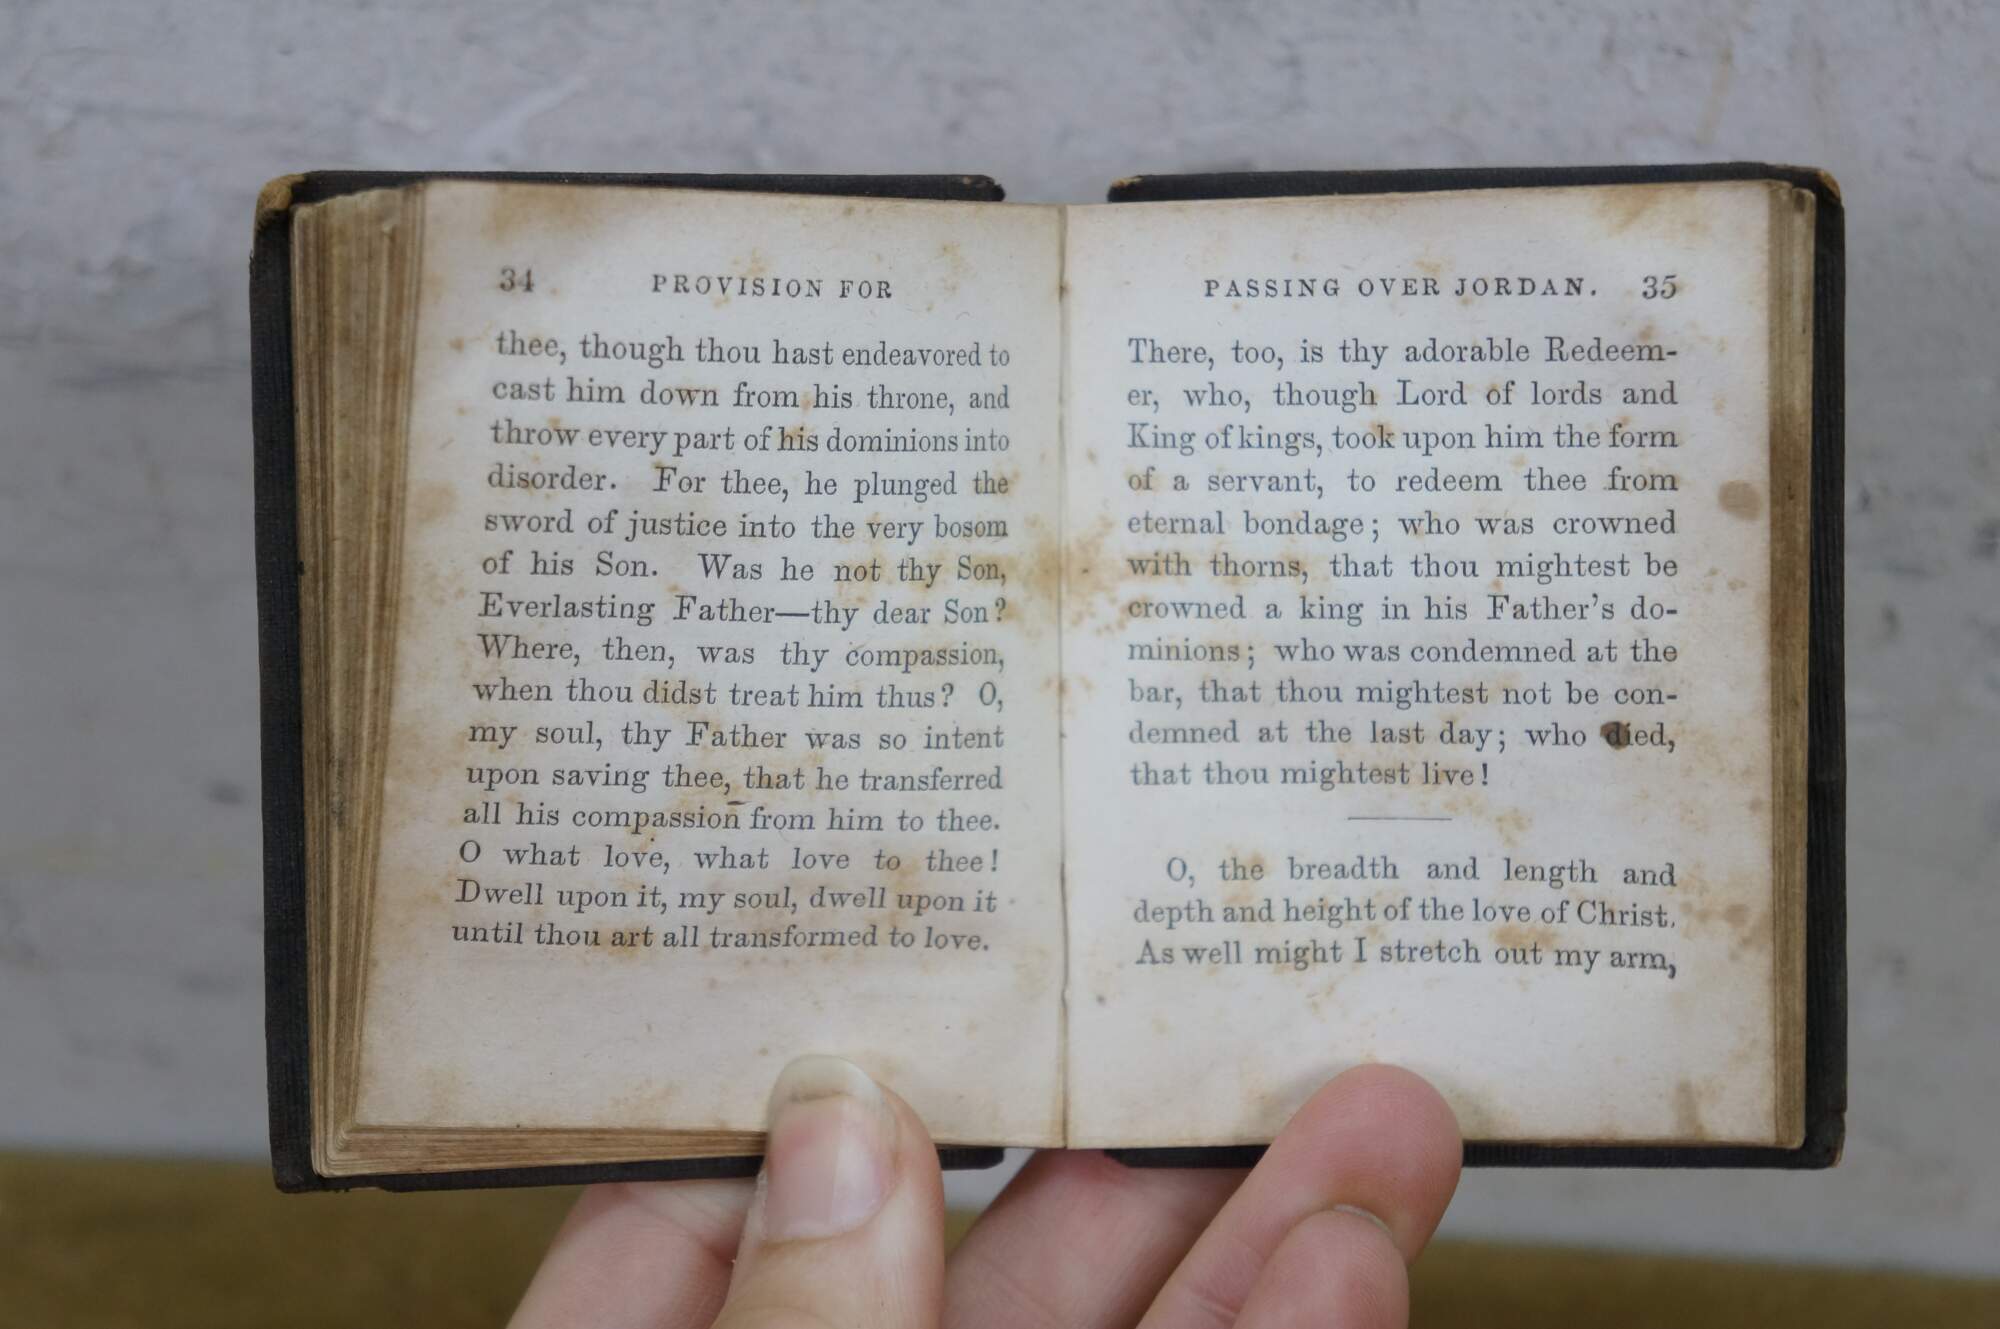 34 PROVISION FOR
thee, though thou hast endeavored to
cast him down from his throne, and
throw every part of his dominions into
disorder. For thee, he plunged the
sword of justice into the very bosom
of his Son. Was he not thy Son,
Everlasting Father—thy dear Son?
Where, then, was thy compassion,
when thou didst treat him thus? O,
my soul, thy Father was so intent
upon saving thee, that he transferred
all his compassion from him to thee.
O what love, what love to thee!
Dwell upon it, my soul, dwell upon it
until thou art all transformed to love.
PASSING OVER JORDAN. 35
There, too, is thy adorable Redeem-
er, who, though Lord of lords and
King of kings, took upon him the form
of a servant, to redeem thee from
eternal bondage; who was crowned
with thorns, that thou mightest be
crowned a king in his Father's do-
minions; who was condemned at the
bar, that thou mightest not be con-
demned at the last day; who died,
that thou mightest live!
O, the breadth and length and
depth and height of the love of Christ.
As well might I stretch out my arm,